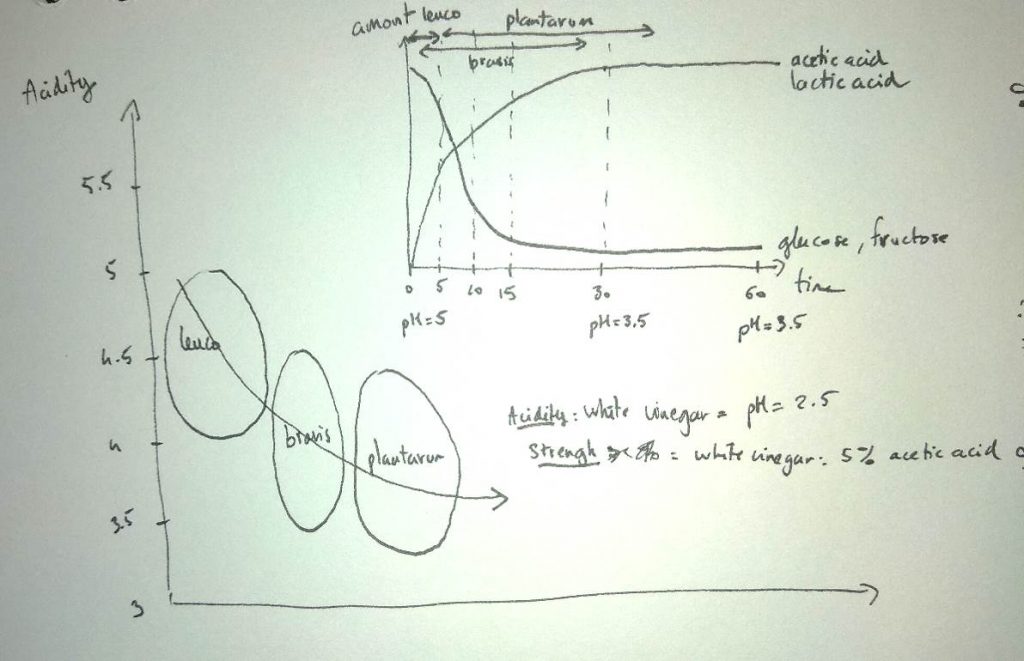 amont leuco
plantarum
bravis
acetic acid
lactic acid
glucose, fructose
0 5 10 15 30 60 time
pH=5 pH=3.5 pH=3.5
Acidity
5.5
5
4.5
4
3.5
3
leuco
bravis
plantarum
Acidity: White vinegar = pH= 2.5
Strengh = white vinegar: 5% acetic acid